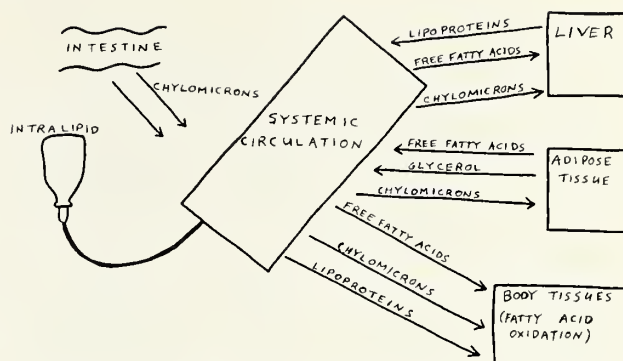 INTESTINE
CHYLOMICRONS
INTRALIPID
SYSTEMIC
CIRCULATION
LIPOPROTEINS
FREE FATTY ACIDS
CHYLOMICRONS
LIVER
FREE FATTY ACIDS
GLYCEROL
CHYLOMICRONS
ADIPOSE
TISSUE
FREE FATTY ACIDS
CHYLOMICRONS
LIPOPROTEINS
BODY TISSUES
(FATTY ACID
OXIDATION)